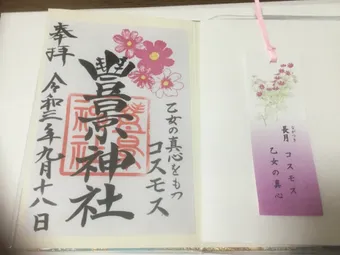 乙女の真心をもつ
コスモス
豐景神社
奉拝
令和三年九月十八日
長月 コスモス
乙女の真心